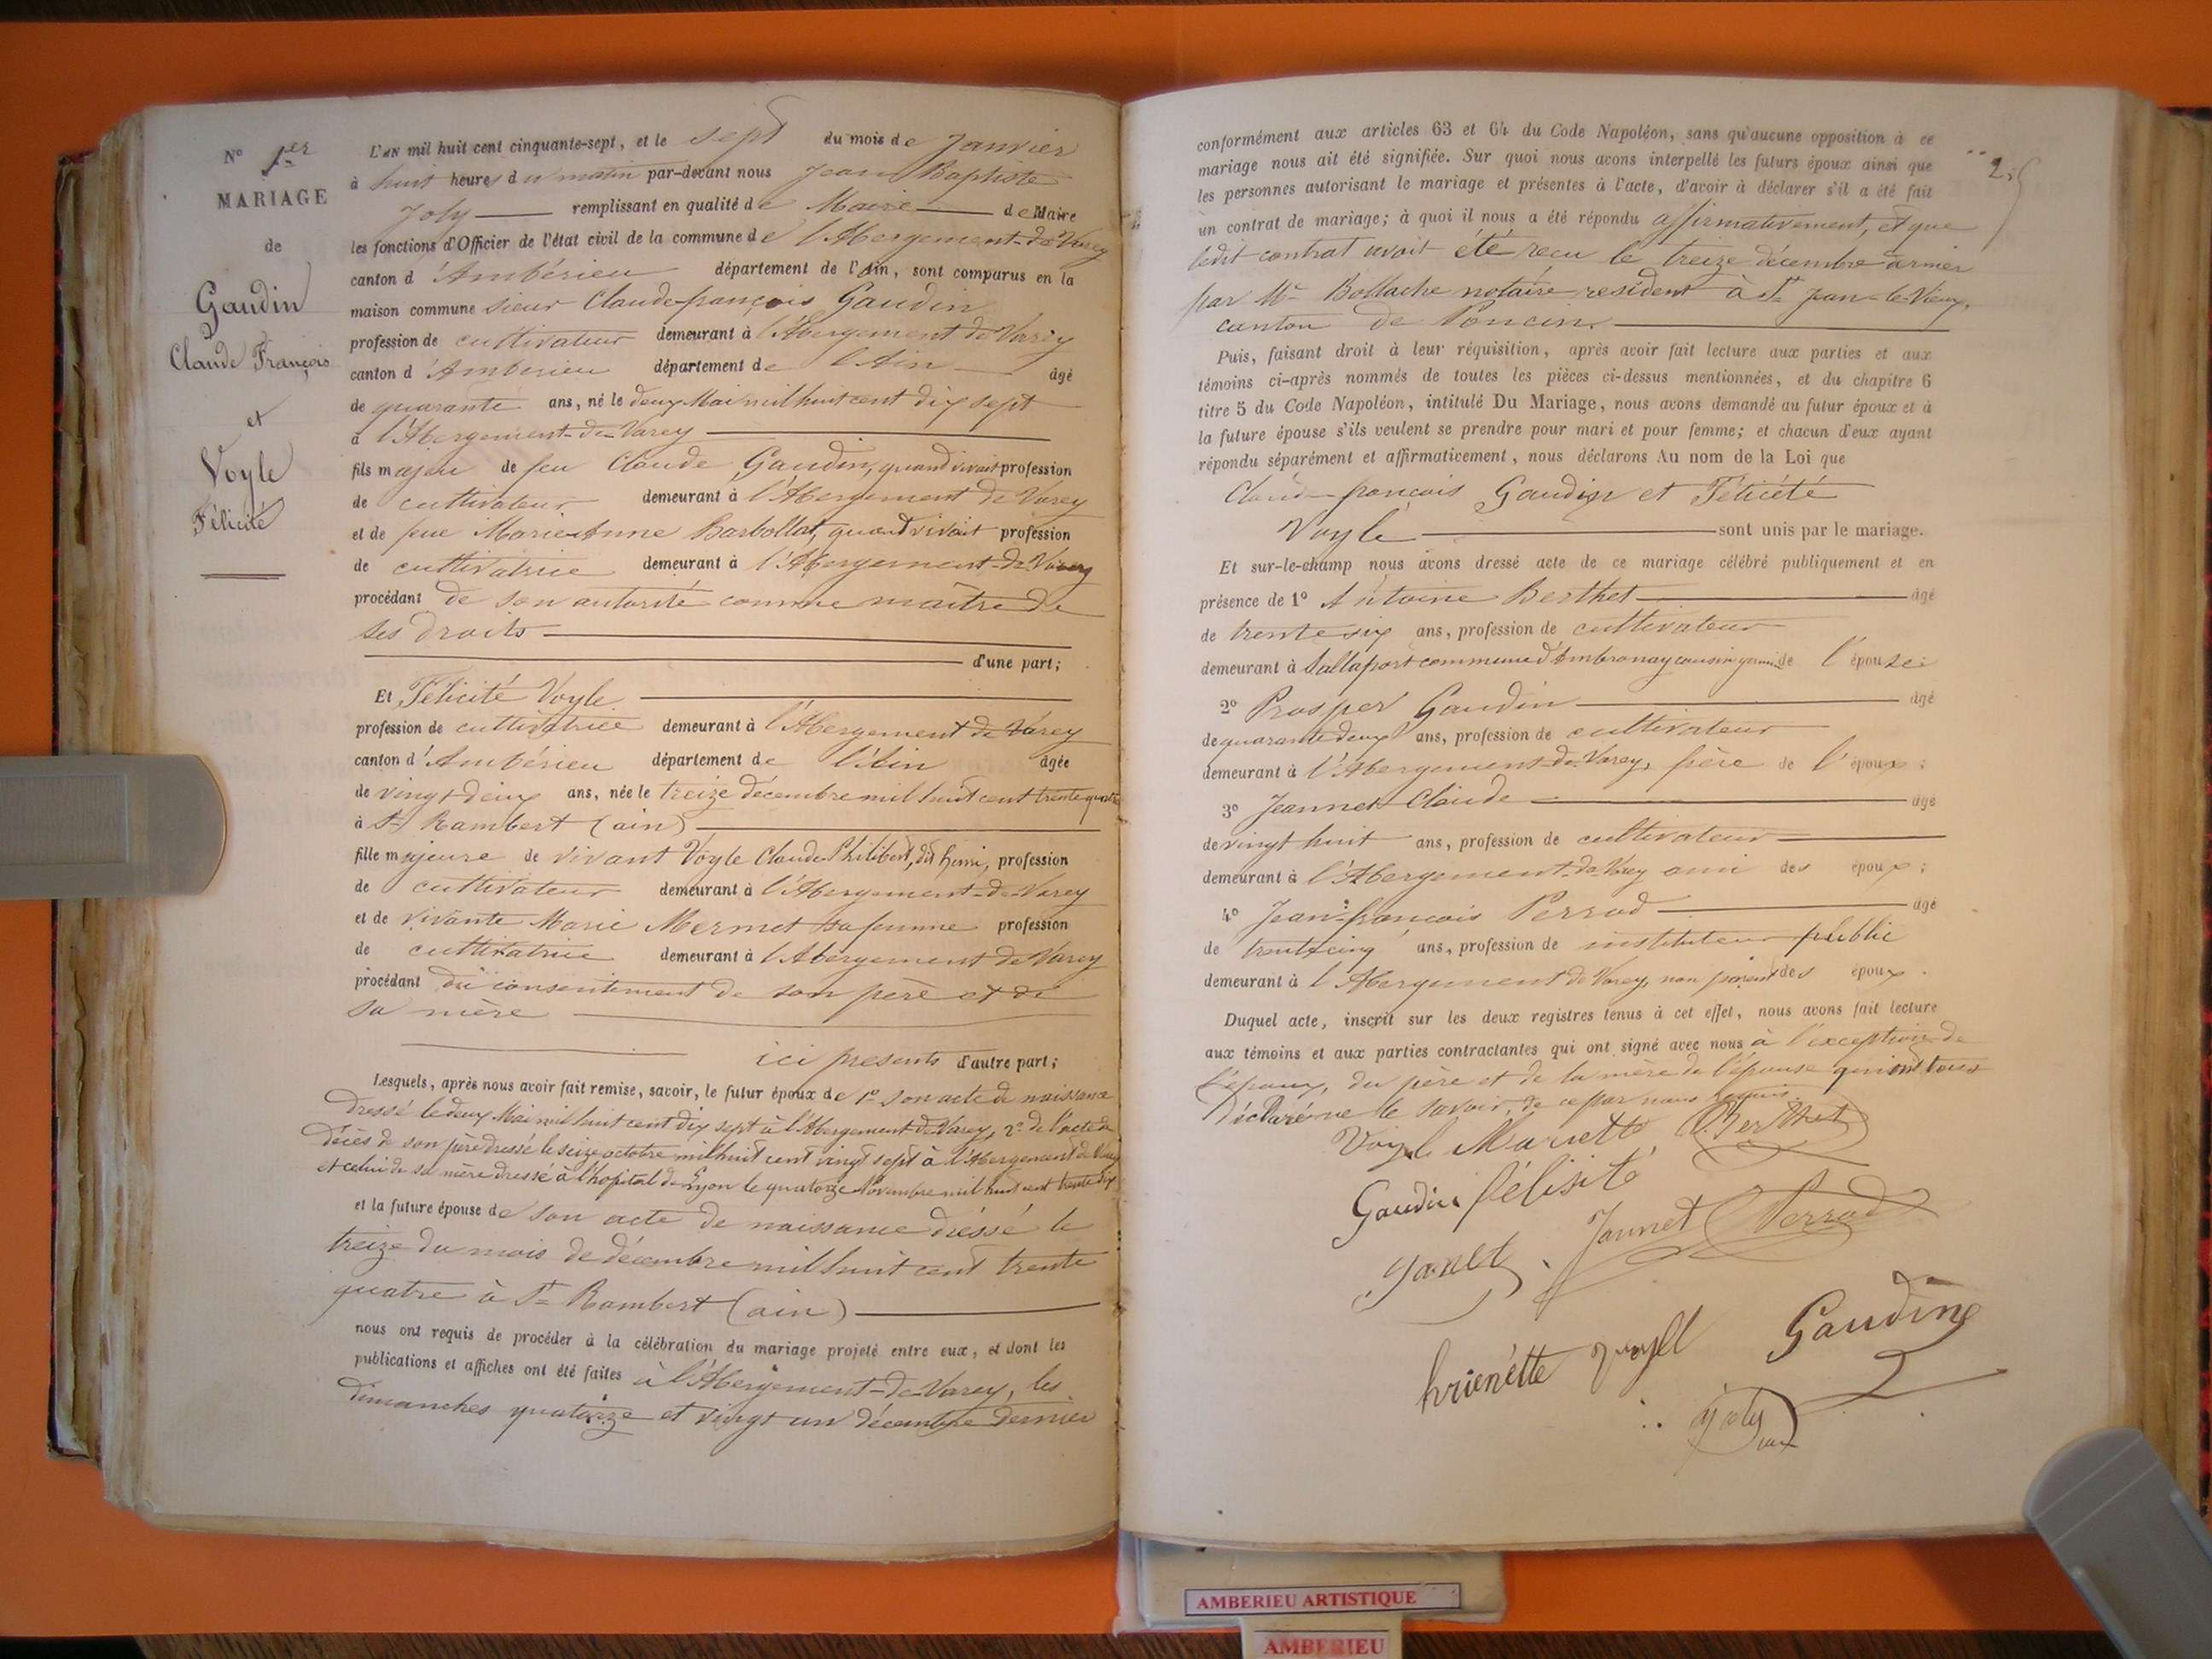 N° 1er
MARIAGE
de
Gaudin
Claude François
et
Voyle
Félicité
L'AN mil huit cent cinquante-sept, et le sept du mois de Janvier
à huit heures du matin par-devant nous Jean Baptiste
Joly remplissant en qualité de Maire de Maire
les fonctions d'Officier de l'état civil de la commune de l'Abergement-de-Varey
canton d'Ambérieu département de l'Ain, sont comparus en la
maison commune sieur Claude françois Gaudin
profession de cultivateur demeurant à l'Abergement de Varey
canton d'Ambérieu département de l'Ain âgé
de quarante ans, né le deux Mai mil huit cent dix sept
à l'Abergement-de-Varey
fils majeur de feu Claude Gaudin, quand vivait profession
de cultivateur demeurant à l'Abergement de Varey
et de feue Marie Anne Barbollat, quand vivait profession
de cultivatrice demeurant à l'Abergement-de-Varey
procédant de son autorité comme maître de
ses droits
d'une part;
Et Félicité Voyle
profession de cultivatrice demeurant à l'Abergement de Varey
canton d'Ambérieu département de l'Ain âgée
de vingt deux ans, née le treize décembre mil huit cent trente quatre
à St Rambert (ain)
fille majeure de vivant Voyle Claude Philibert, dit henri, profession
de cultivateur demeurant à l'Abergement-de-Varey
et de vivante Marie Mermet sa femme profession
de cultivatrice demeurant à l'Abergement de Varey
procédant du consentement de son père et de
sa mère
ici presents d'autre part;
Lesquels, après nous avoir fait remise, savoir, le futur époux de 1° son acte de naissance
dressé le deux Mai mil huit cent dix sept à l'Abergement de Varey, 2° de l'acte de
décès de son père dressé le seize octobre mil huit cent vingt sept à l'Abergement de Varey
et celui de sa mère dressé à l'hopital de Lyon le quatorze Novembre mil huit cent trente dix
et la future épouse de son acte de naissance dréssé le
treize du mois de décembre mil huit cent trente
quatre à St Rambert (ain)
nous ont requis de procéder à la célébration du mariage projeté entre eux, et dont les
publications et affiches ont été faites à l'Abergement-de-Varey, les
dimanches quatorze et vingt un décembre dernier
2.
conformément aux articles 63 et 64 du Code Napoléon, sans qu'aucune opposition à ce
mariage nous ait été signifiée. Sur quoi nous avons interpellé les futurs époux ainsi que
les personnes autorisant le mariage et présentes à l'acte, d'avoir à déclarer s'il a été fait
un contrat de mariage; à quoi il nous a été répondu affirmativement, et que
ledit contrat avait été recu le treize décembre dernier
par Me Bollache notaire resident à St jean-le-Vieux,
canton de Poncin.
Puis, faisant droit à leur réquisition, après avoir fait lecture aux parties et aux
témoins ci-après nommés de toutes les pièces ci-dessus mentionnées, et du chapitre 6
titre 5 du Code Napoléon, intitulé Du Mariage, nous avons demandé au futur époux et à
la future épouse s'ils veulent se prendre pour mari et pour femme; et chacun d'eux ayant
répondu séparément et affirmativement, nous déclarons Au nom de la Loi que
Claude françois Gaudin et Félicité
Voyle sont unis par le mariage.
Et sur-le-champ nous avons dressé acte de ce mariage célébré publiquement et en
présence de 1° Antoine Berthet âgé
de trente six ans, profession de cultivateur
demeurant à Sallaport commune d'Ambronay cousin germain de l'épouse;
2° Prosper Gaudin âgé
de quarante deux ans, profession de cultivateur
demeurant à l'Abergement-de-Varey, frère de l'époux;
3° Jeannet Claude âgé
de vingt huit ans, profession de cultivateur
demeurant à l'Abergement-de-Varey ami des époux;
4° Jean-françois Perrod âgé
de trente cinq ans, profession de instituteur public
demeurant à l'Abergement de Varey, non parent des époux.
Duquel acte, inscrit sur les deux registres tenus à cet effet, nous avons fait lecture
aux témoins et aux parties contractantes qui ont signé avec nous à l'exception de
l'époux, du père et de la mère de l'épouse qui ont tous
déclaré ne le savoir, de ce par nous requis.
Voyle Mariette Berthet
Gaudin félisité
Janet Jannet Perrod
hrienétte voyll Gaudin
Joly
AMBERIEU ARTISTIQUE
AMBERIEU